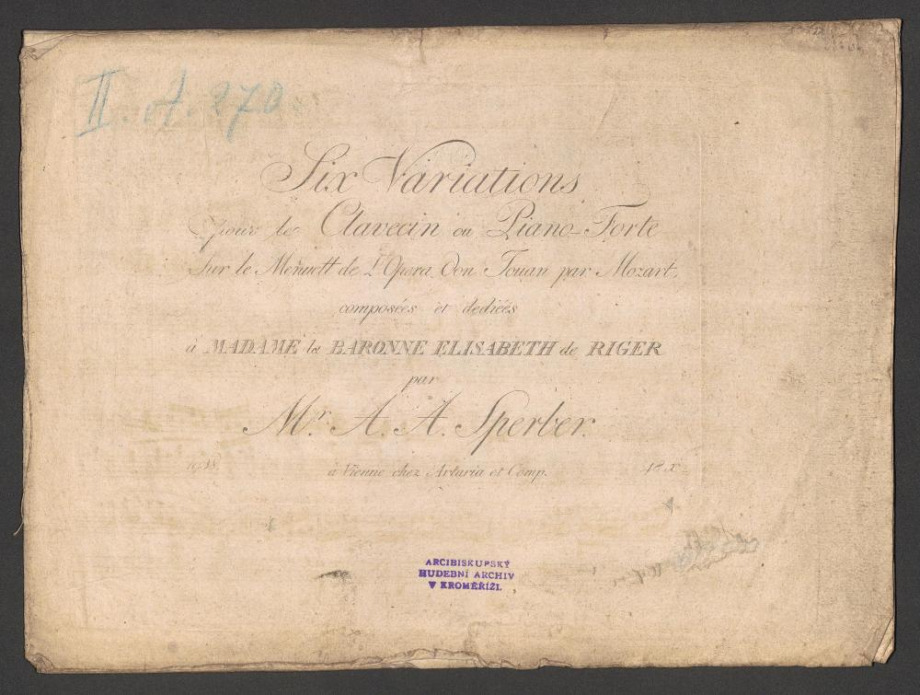 II. A. 270
Six Variations
pour le Clavecin ou Piano-Forte
Sur le Menuett de L'Opera Don Jouan par Mozart,
composées et dediées
à MADAME la BARONNE ELISABETH de RIGER
par
Mr. A. A. Sperber.
à Vienne chez Artaria et Comp.
ARCIBISKUPSKÝ
HUDEBNÍ ARCHIV
V KROMĚŘÍŽI.